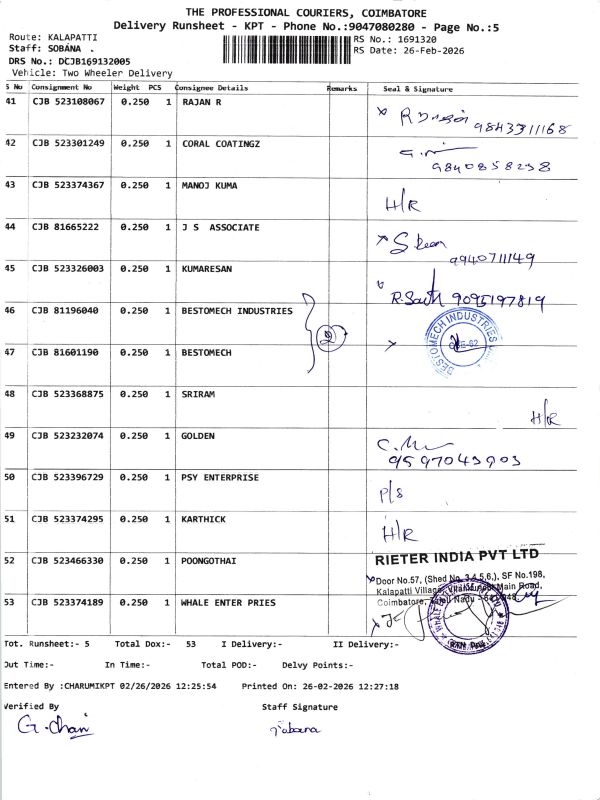 THE PROFESSIONAL COURIERS, COIMBATORE
Delivery Runsheet - KPT - Phone No.:9047080280 - Page No.:5
Route: KALAPATTI
RS No.: 1691320
Staff: SOBANA .
RS Date: 26-Feb-2026
DRS No.: DCJB169132005
Vehicle: Two Wheeler Delivery
S No Consignment No Weight PCS Consignee Details Remarks Seal & Signature
41 CJB 523108067 0.250 1 RAJAN R 9843311168
42 CJB 523301249 0.250 1 CORAL COATINGZ 9840858298
43 CJB 523374367 0.250 1 MANOJ KUMA H/R
44 CJB 81665222 0.250 1 J S ASSOCIATE 9940711149
45 CJB 523326003 0.250 1 KUMARESAN 9095197819
46 CJB 81196040 0.250 1 BESTOMECH INDUSTRIES 2
BESTOMECH INDUSTRIES
47 CJB 81601190 0.250 1 BESTOMECH
48 CJB 523368875 0.250 1 SRIRAM H/R
49 CJB 523232074 0.250 1 GOLDEN 9597043903
50 CJB 523396729 0.250 1 PSY ENTERPRISE P/S
51 CJB 523374295 0.250 1 KARTHICK H/R
52 CJB 523466330 0.250 1 POONGOTHAI
RIETER INDIA PVT LTD
Door No.57, (Shed No. 3,4,5,6,), SF No.198,
Kalapatti Village, Main Road,
Coimbatore, Tamil Nadu
53 CJB 523374189 0.250 1 WHALE ENTER PRIES
Tot. Runsheet:- 5 Total Dox:- 53 I Delivery:- II Delivery:-
Out Time:- In Time:- Total POD:- Delvy Points:-
Entered By :CHARUMIKPT 02/26/2026 12:25:54 Printed On: 26-02-2026 12:27:18
Verified By Staff Signature